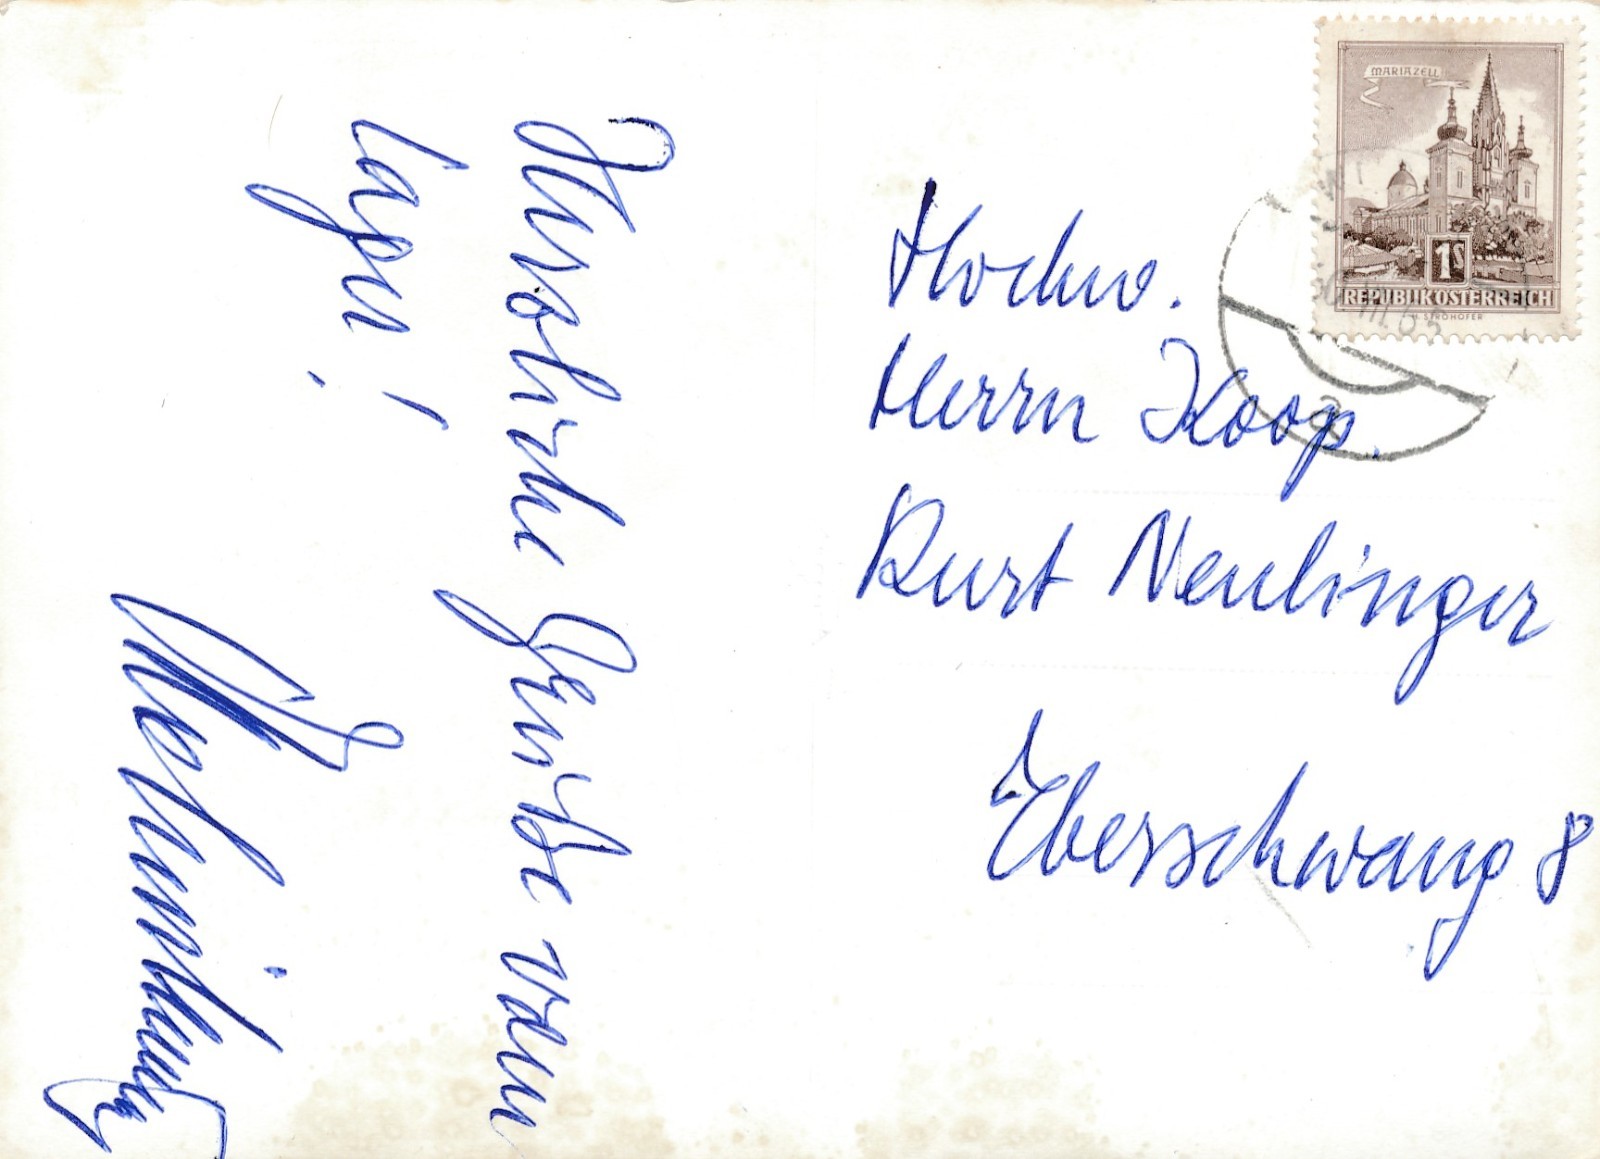 Herzliche Grüße vom
Lager!
Hochw.
Herrn Koop.
Kurt Neulinger
Eberschwang 8
MARIAZELL
1S
REPUBLIK ÖSTERREICH
H. STROHOFER